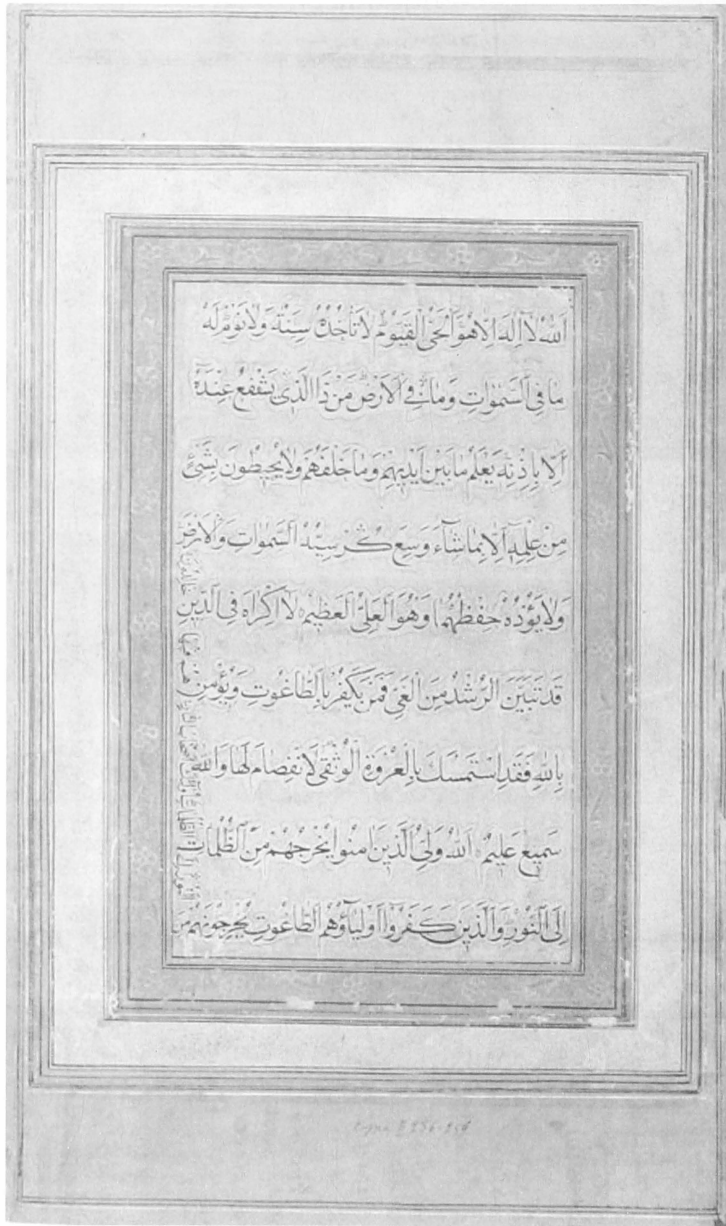 اَللّٰهُ لَا اِلٰهَ اِلَّا هُوَ اَلْحَيُّ الْقَيُّومُ لَا تَأْخُذُهُ سِنَةٌ وَلَا نَوْمٌ لَهُ
مَا فِي السَّمٰوَاتِ وَمَا فِي الْاَرْضِ مَنْ ذَا الَّذِي يَشْفَعُ عِنْدَهُ
اِلَّا بِاِذْنِهِ يَعْلَمُ مَا بَيْنَ اَيْدِيهِمْ وَمَا خَلْفَهُمْ وَلَا يُحِيطُونَ بِشَيْءٍ
مِنْ عِلْمِهِ اِلَّا بِمَا شَآءَ وَسِعَ كُرْسِيُّهُ السَّمٰوَاتِ وَالْاَرْضَ
وَلَا يَؤُدُهُ حِفْظُهُمَا وَهُوَ الْعَلِيُّ الْعَظِيمُ لَا اِكْرَاهَ فِي الدِّينِ
قَدْ تَبَيَّنَ الرُّشْدُ مِنَ الْغَيِّ فَمَنْ يَكْفُرْ بِالطَّاغُوتِ وَيُؤْمِنْ
بِاللّٰهِ فَقَدِ اسْتَمْسَكَ بِالْعُرْوَةِ الْوُثْقٰى لَا انْفِصَامَ لَهَا وَاللّٰهُ
سَمِيعٌ عَلِيمٌ اَللّٰهُ وَلِيُّ الَّذِينَ اٰمَنُوا يُخْرِجُهُمْ مِنَ الظُّلُمَاتِ
اِلَى النُّورِ وَالَّذِينَ كَفَرُوا اَوْلِيَاؤُهُمُ الطَّاغُوتُ يُخْرِجُونَهُمْ مِنَ